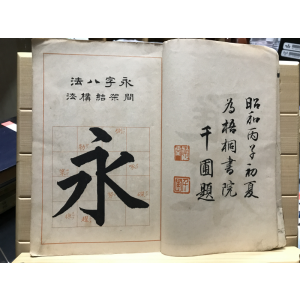 昭和丙子初夏
為梧桐書院
千圃題
永字八法
間架結構法
永